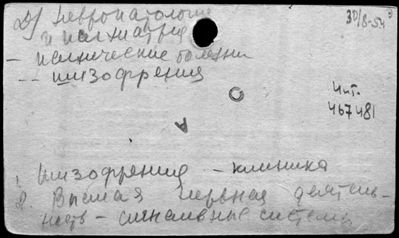 2) Невропатология
и психиатрия
30/8-54
– психические болезни
-- шизофрения
Чит.
467481
А
1. Шизофрения – клиника
2. Высшая нервная деятель-
ность – сигнальные системы